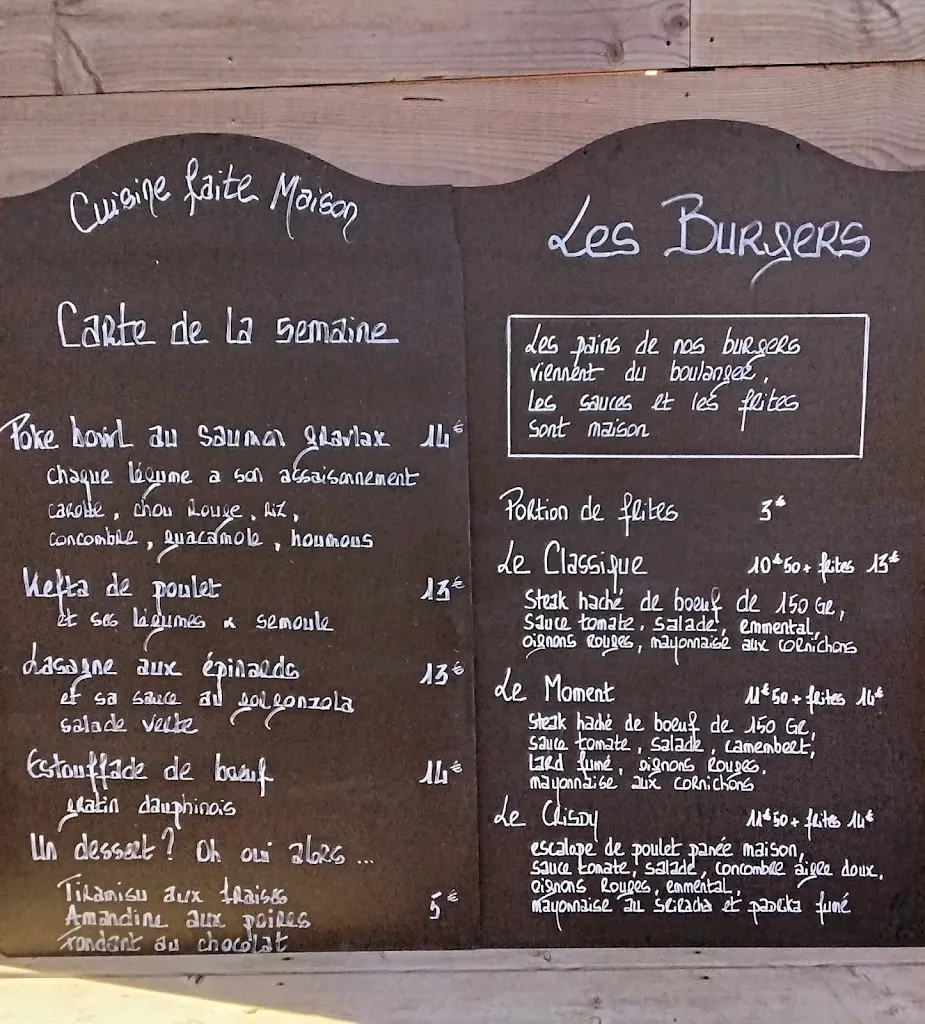 Cuisine faite Maison
Carte de la semaine
Poke bowl au saumon gravlax 14€
chaque légume a son assaisonnement
carotte, chou rouge, riz,
concombre, guacamole, houmous
Kefta de poulet 13€
et ses légumes & semoule
Lasagne aux épinards 13€
et sa sauce au gorgonzola
salade verte
Estouffade de boeuf 14€
gratin dauphinois
Un dessert? Oh oui alors...
Tiramisu aux fraises
Amandine aux poires 5€
Fondant au chocolat
Les Burgers
Les pains de nos burgers
viennent du boulanger,
les sauces et les frites
sont maison
Portion de frites 3€
Le Classique 10€50 + frites 13€
Steak haché de boeuf de 150 Gr,
sauce tomate, salade, emmental,
oignons rouges, mayonnaise aux cornichons
Le Moment 11€50 + frites 14€
Steak haché de boeuf de 150 Gr,
sauce tomate, salade, camembert,
lard fumé, oignons rouges,
mayonnaise aux cornichons
Le Crispy 11€50 + frites 14€
escalope de poulet panée maison,
sauce tomate, salade, concombre aigre doux,
oignons rouges, emmental,
mayonnaise au sriracha et paprika fumé